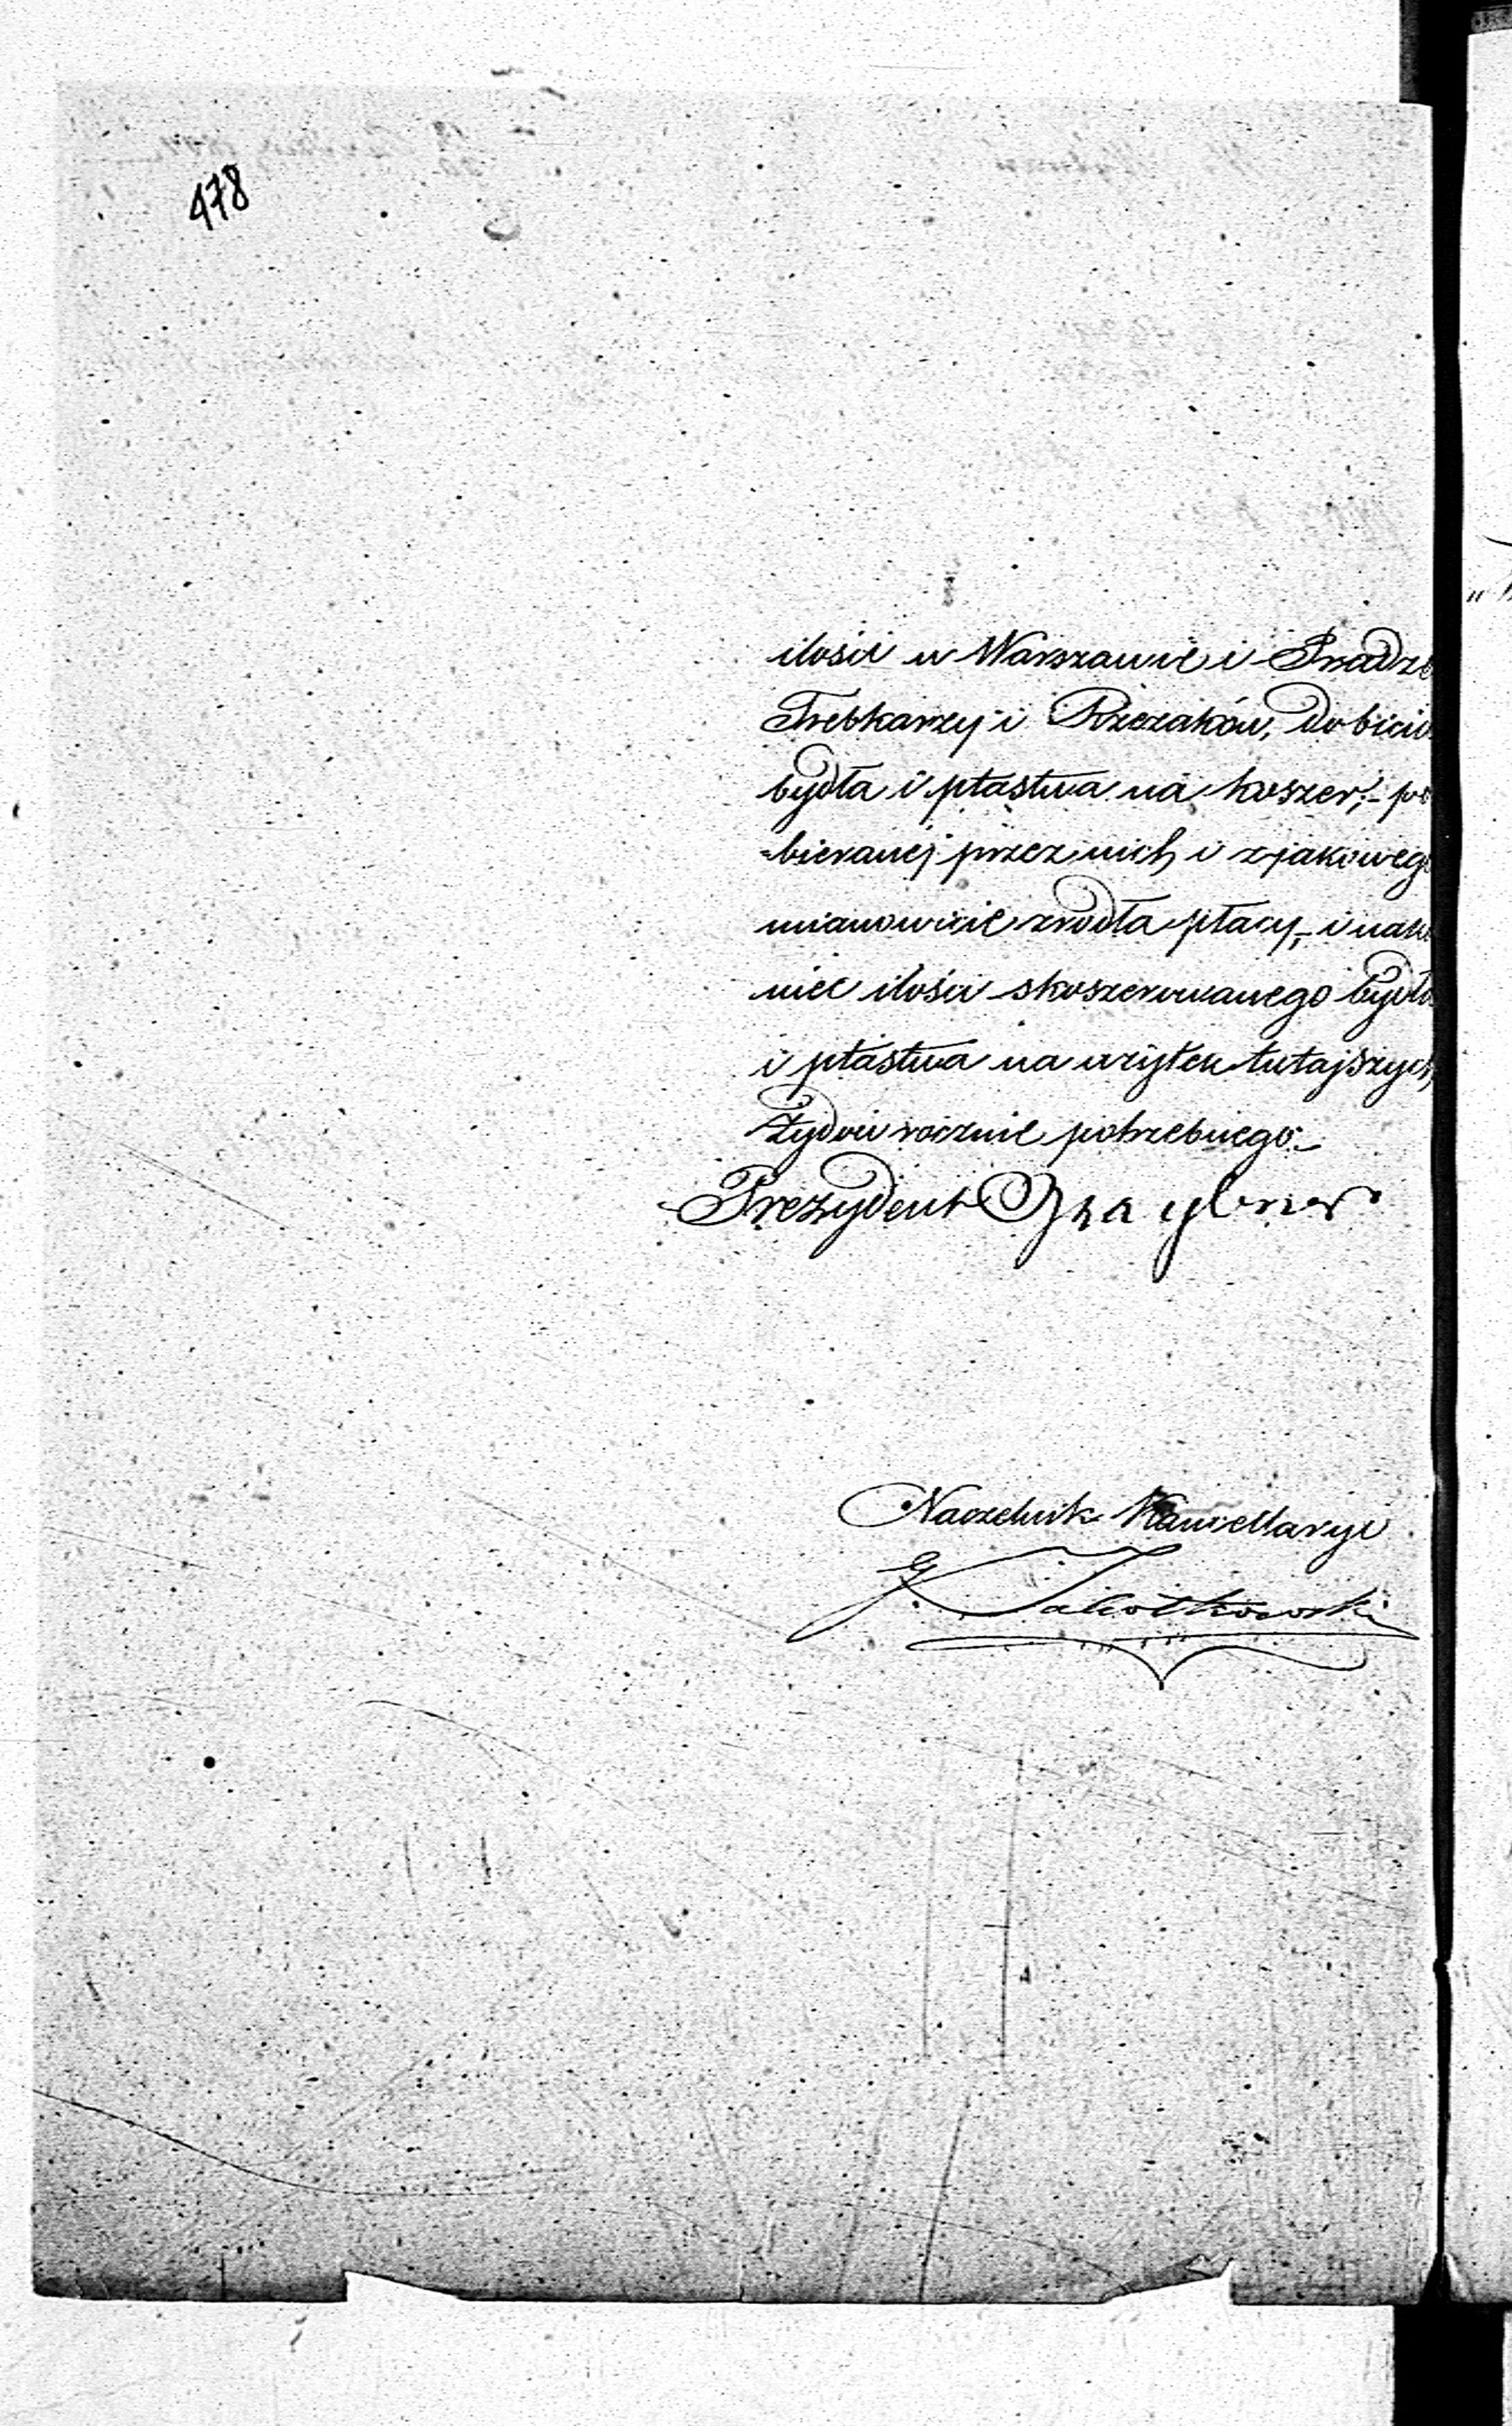 478
ilości w Warszawie i Pradze
Trebkarzy i Rzezaków, do bicia
bydła i ptastwa na koszer, – po
-bieranej przez nich i z jakowego
mianowicie zrodła płacy, – i nako
niec ilości skoszerowanego bydła
i ptastwa na użytek tutajszych
Żydów rocznie potrzebnego. –
Prezydent Graybner
Naczelnik Kancellaryi